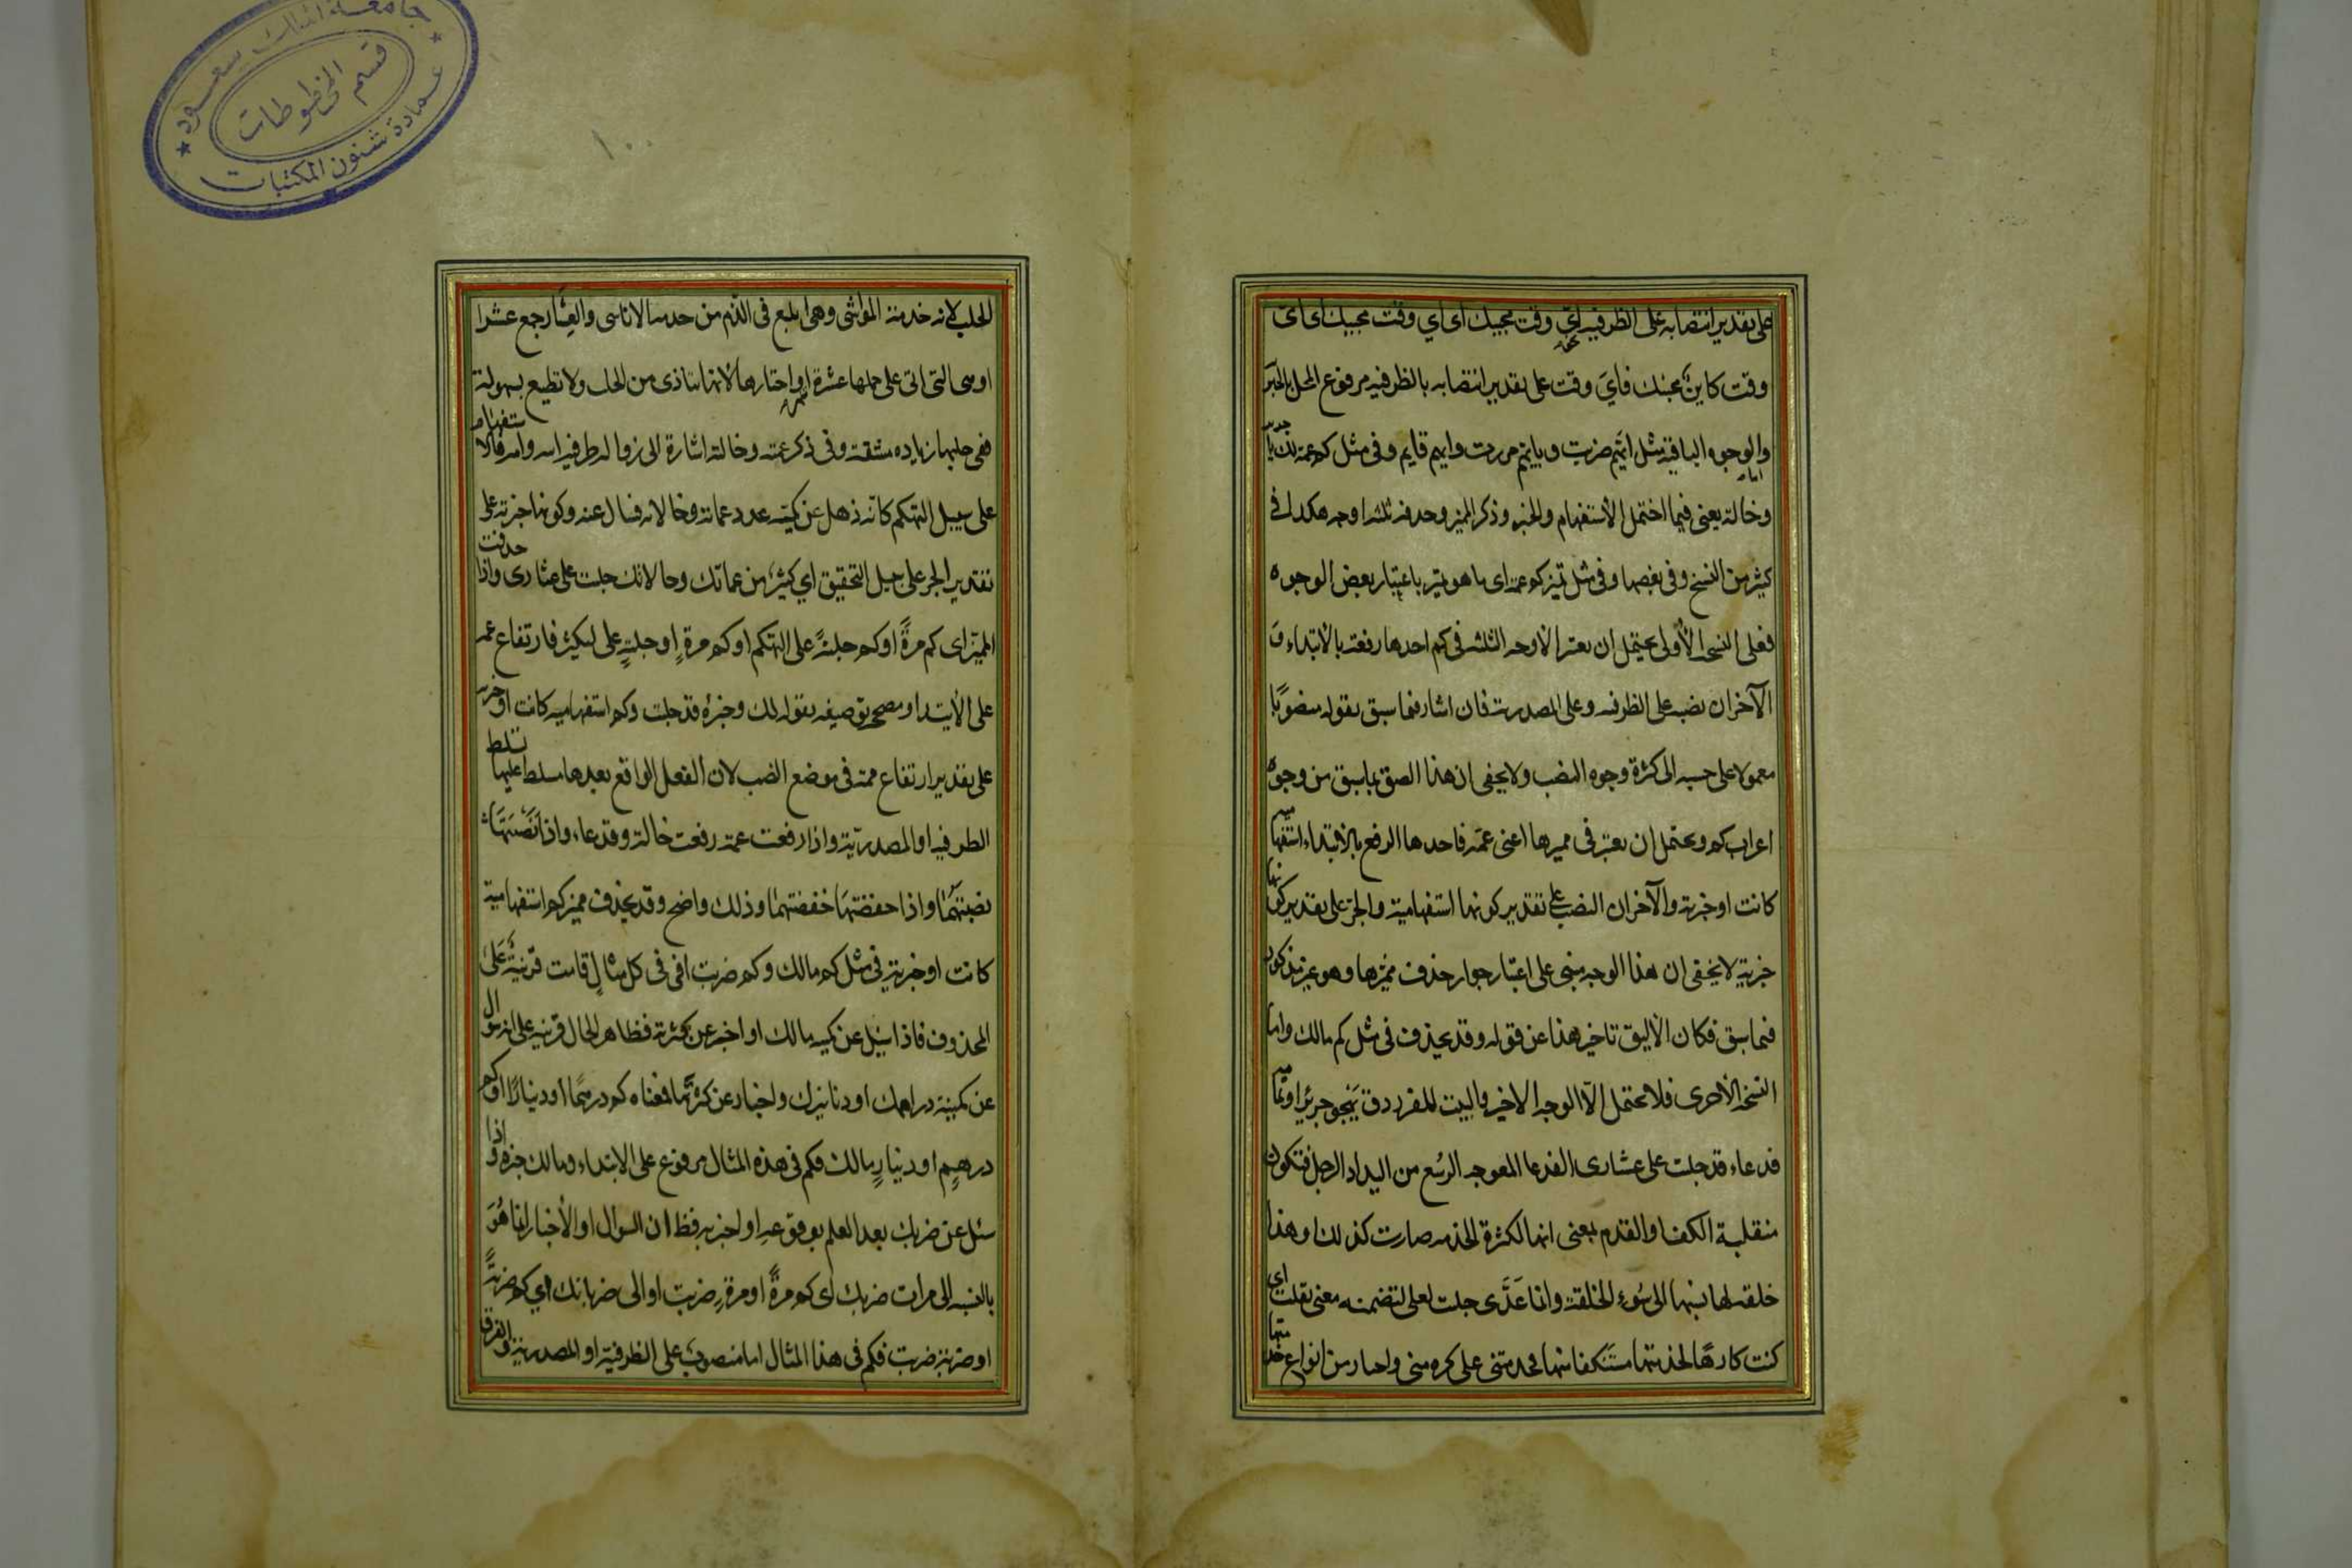 على تقدير انتصابه على الظرفية اي وقت مجيئك اى اي وقت مجيئك اى اى
وقت كاين مجيئك فاي وقت على تقدير انتصابه بالظرفيه مرفوع المحل بالخبرية
والوجوه الباقية مثل ايهم ضربت وبايهم مررت وايهم قايم وفى مثل كم عمة لك يا جرير
وخالة يعنى فيما احتمل الاستفهام والخبر وذكر المميز وحذفه ثلثه اوجه هكذا فى
كثير من النسخ وفى بعضها وفى مثل تميز كم عمة اى ما هو تميز باعتبار بعض الوجوه
فعلى النسخه الأولى يحتمل ان يعتبر الاوجه الثلثه فى كم احدها رفعه بالابتداء و
الآخران نصبه على الظرفيه وعلى المصدرية فان اشار فيما سبق بقوله منصوبًا
معمولا على حسبه الى كثرة وجوه النصب ولا يخفى ان هذا الصق بما سبق من وجوه
اعراب كم ويحتمل ان يعتبر فى مميزها اعنى عمة فاحدها الرفع بالابتداء استفهامية
كانت او خبرية والآخران النصب على تقدير كونها استفهامية والجر على تقدير كونها
خبرية لا يخفى ان هذا الوجه مبنى على اعتبار جواز حذف مميزها وهو غير مذكور
فيما سبق فكان الأليق تاخير هذا عن قوله وقد يحذف فى مثل كم مالك واما
النسخه الأخرى فلا يحتمل الا الوجه الاخير والبيت للفرزدق يهجو جريرا وتمامه
فدعاء قد حلبت على عشارى الفدعا المعوجه الرسغ من اليد او الرجل فتكون
منقلبة الكف او القدم بمعنى انها لكثرة الخدمه صارت كذلك او هذا
خلقة لها نسبها الى سوء الخلقة وانما عدى حلبت لعلى لتضمنه معنى ثقلت اى
كنت كارها لخدمتها مستنكفا منها فخدمتنى على كره منى واختار من انواع خدمتها
الحلب لانه خدمة المواشى وهى ابلغ فى الذم من خدمة الاناسى والعشار جمع عشرا
وهى التى اتى على حملها عشرة اشهر واختارها لانها تتاذى من الحلب ولا تطيع بسهولة
ففى حلبها زياده مشقة وفى ذكر عمته وخالته اشارة الى رذالة طرفيه ابيه وامه فالاستفهام
على سبيل التهكم كانه ذهل عن كمية عدد عماته وخالاته فسال عنه وكونها خبرية على
تقدير الجر على سبيل التحقيق اي كثير من عماتك وخالاتك حلبت على عشارى واذا حذفت
المميز اى كم مرةً او كم حلبةً على التهكم او كم مرةٍ او حلبةٍ على التكثير فارتفاع عمة
على الابتداء ومصحح توصيفه بقوله لك وخبره قد حلبت وكم استفهاميه كانت او خبرية
على تقدير ارتفاع عمة فى موضع النصب لان الفعل الواقع بعدها مسلط عليها تسلط
الظرفيه او المصدرية واذا رفعت عمة رفعت خالة وفدعاء واذا نصبتها
نصبتهما واذا خفضتها خفضتهما وذلك واضح وقد يحذف مميز كم استفهامية
كانت او خبرية فى مثل كم مالك وكم ضربت اى فى كل مثالٍ قامت قرينة على
المحذوف فاذا سئل عن كمية مالك او اخبر عن كثرته فظاهر الحال قرينة على انه سؤال
عن كمية دراهمك او دنانيرك واخبار عن كثرتها فمعناه كم درهمًا او دينارًا او كم
درهمٍ او دينارٍ مالك فكم فى هذه المثال مرفوع على الابتداء ومالك خبره واذا
سئل عن ضربك بعد العلم بوقوعه او اخبر به فظ ان السوال او الأخبار انما هو
بالنسبه الى مرات ضربك اى كم مرةً او مرةٍ ضربت او الى ضرباتك اي كم ضربةً
او ضربةٍ ضربت فكم فى هذا المثال اما منصوب على الظرفية او المصدرية والفرق
جامعة الملك سعود
قسم المخطوطات
عمادة شئون المكتبات
١٠٠